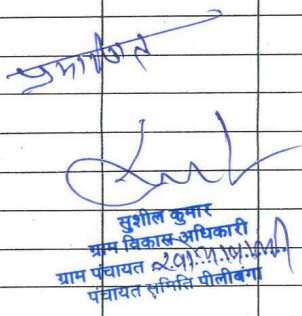 प्रमाणित
सुशील कुमार
ग्राम विकास अधिकारी
ग्राम पंचायत
पंचायत समिति पीलीबंगा